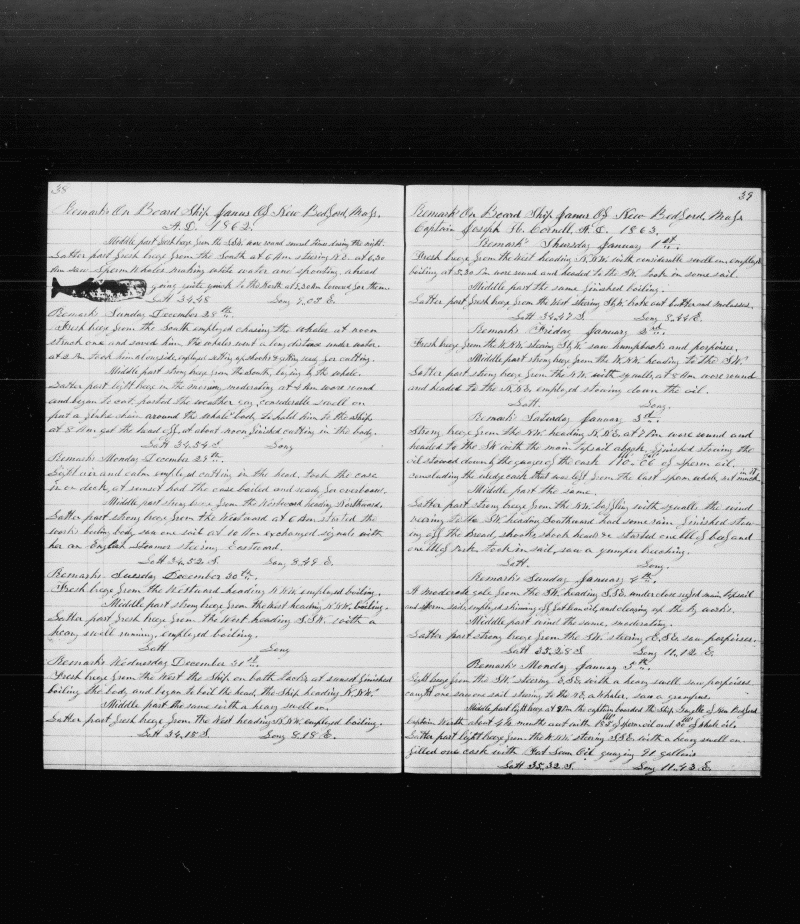 38
Remarks On Board Ship Janus Of New Bedford, Mass.
A.D. 1862.
Middle part fresh breeze from the S.S.W. wore round several times during the night.
Latter part fresh breeze from the South at 6 Am steering N.E. at 6,30
Am saw Sperm Whales making white water and spouting, ahead
going quite quick to the North at 7,30 Am lowered for them.
Latt 34,48 Long 9,03 E.
Remarks Sunday December 28th
Fresh breeze from the South employed chasing the whales at noon
struck one and saved him, the whales went a long distance under water.
at 2 Pm took him alongside, employed getting up and getting ready for cutting.
Middle part strong breeze from the South, laying by the whale.
Latter part light breeze in the morning, moderating at 4 Am wore round
and began to cut, parted the weather guy, considerable swell on
put a fluke chain around the whale's body to hold him to the ship,
at 8 Am got the head off, at about noon finished cutting in the body.
Latt 34,54 S. Long
Remarks Monday December 29th
Light air and calm employed cutting in the head, took the case
in on deck, at sunset had the case bailed and ready for overboard.
Middle part strong breeze from the Westward heading Northward.
Latter part strong breeze from the Westward at 6 Am started the
works boiling body, saw one sail at 10 Am exchanged signals with
her an English Steamer steering Eastward.
Latt 34,52 S. Long 8,49 E.
Remarks Tuesday December 30th
Fresh breeze from the Westward heading N.N.W. employed boiling.
Middle part strong breeze from the West heading N.N.W. boiling.
Latter part fresh breeze from the West heading S.S.W. with a
heavy swell running, employed boiling.
Latt Long
Remarks Wednesday December 31st
Fresh breeze from the West the Ship on both tacks at sunset finished
boiling the body, and began to boil the head, the Ship heading N.N.W.
Middle part the same with a heavy swell on.
Latter part fresh breeze from the West heading N.N.W. employed boiling.
Latt 34,18 S. Long 8,18 E.
39
Remarks On Board Ship Janus Of New Bedford, Mass
Captain Joseph H. Cornell, A.D. 1863.
Remarks Thursday January 1st
Fresh breeze from the West heading N.N.W. with considerable swell on, employed
boiling at 5,30 Pm wore round and headed to the S.W. took in some sail.
Middle part the same finished boiling.
Latter part fresh breeze from the West steering broke out butter and molasses.
Latt 34,47 S. Long 8,44 E.
Remarks Friday January 2nd
Fresh breeze from the W.N.W. steering saw humpbacks and porpoises.
Middle part strong breeze from the W.N.W. heading to the S.W.
Latter part strong breeze from the N.W. with squalls, at 8 Am wore round
and headed to the N.N.E. employed stowing down the oil.
Latt. Long.
Remarks Saturday January 3rd
Strong breeze from the N.W. heading N.N.E. at 7 Pm wore round and
headed to the SW with the main topsail aback, finished stowing the
oil stowed down by the gauges of the cask of sperm oil,
including the sledge cask that was left from the last sperm whale, not much in it.
Middle part the same.
Latter part strong breeze from the N.W. baffling with squalls the wind
veering to the SW heading Southward had some rain finished stow-
ing off the bread, shook shook heads &c started one bbl of beef and
one bbl of Pork, took in sail, saw a gumper breeching.
Latt. Long.
Remarks Sunday January 4th
A moderate gale from the SW heading S.S.E. under close reefed main topsail
and storm sails employed skimming off foot han oil, and cleaning up the try works.
Middle part wind the same, moderating.
Latter part strong breeze from the SW steering E.S.E. saw porpoises.
Latt 35,28 S Long 11,12 E.
Remarks Monday January 5th
Light breeze from the SW steering E.S.E. with a heavy swell saw porpoises
caught one saw one sail steering to the N.E. a Whaler, saw a grampuss.
Middle part light breeze, at 7 Pm the captain boarded the Ship of New Bedford
Captain about months out with of sperm oil and of whale oil.
Latter part light breeze from the W.N.W. steering S.S.E. with a heavy swell on
filled one cask with Foot Lean Oil guaging 91 gallons
Latt 35,32 S. Long 11,43 E.